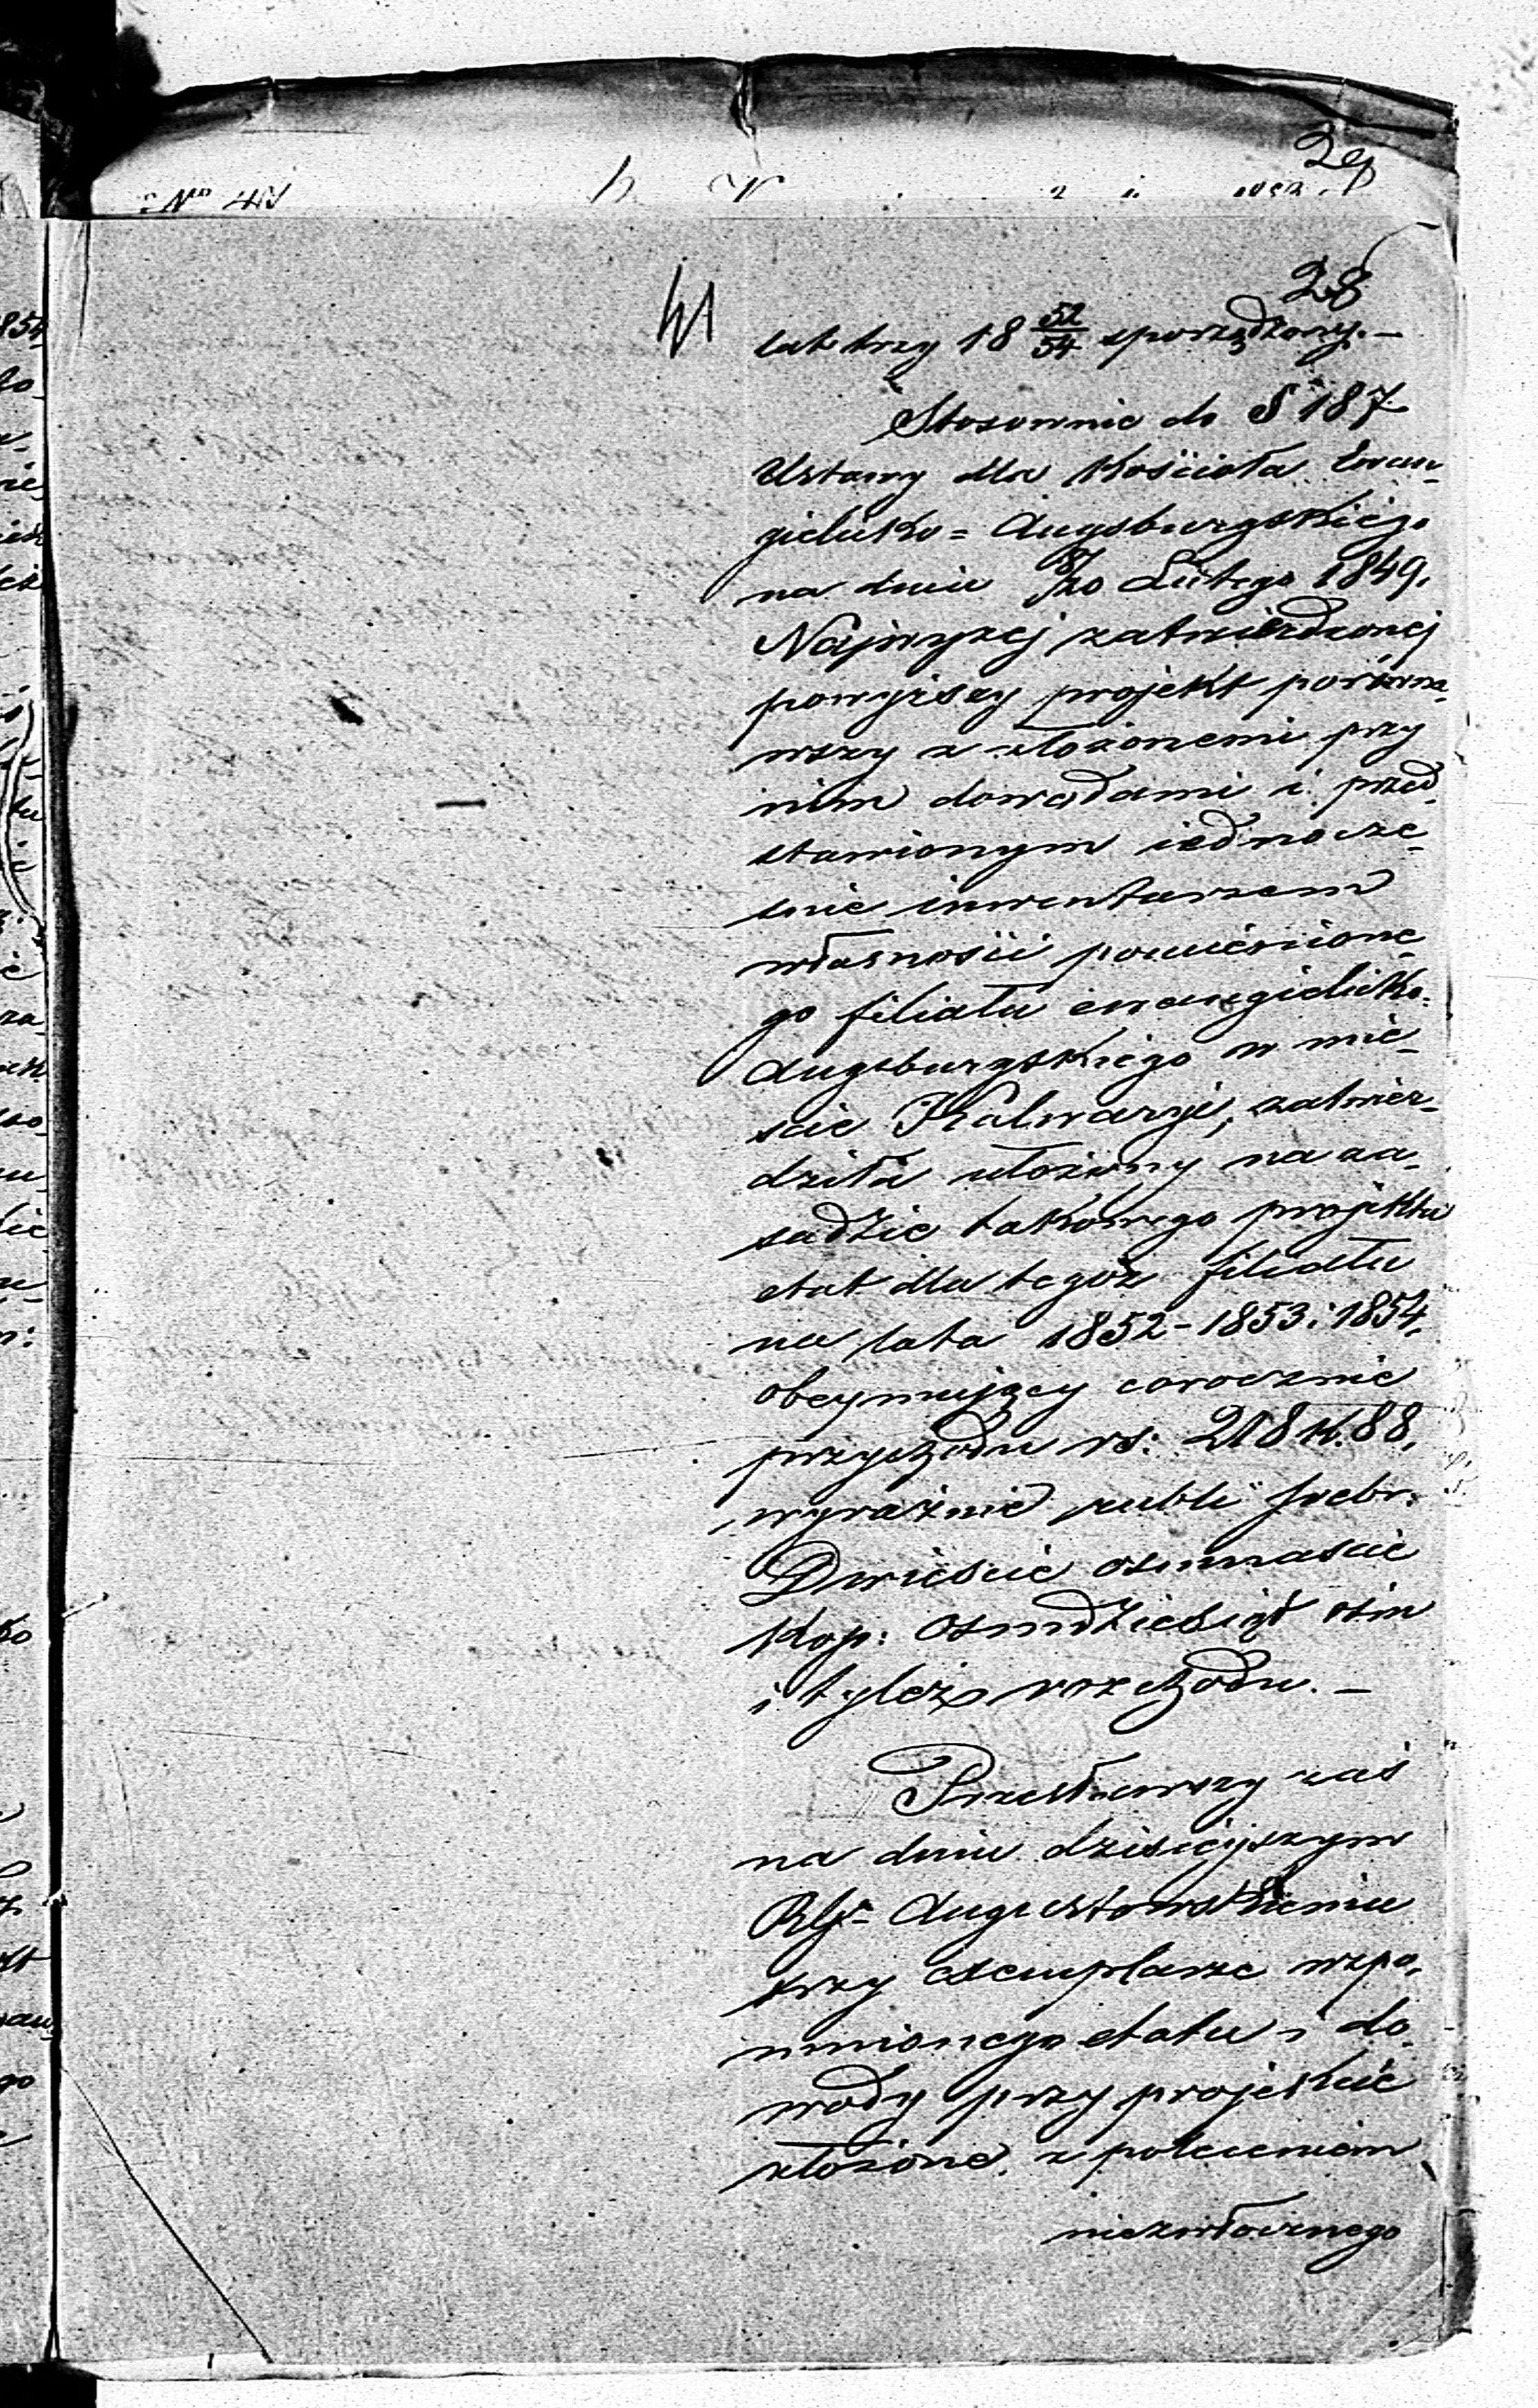 29
28
41
lat trzy 18 52/54 sporządzony. —
Stosownie do § 187
Ustawy dla Kościoła Ewan-
gielicko = Augsburgskiego
na dniu 8/20 Lutego 1849.
Najwyżej zatwierdzonej
powyższy projekt porówna-
wszy z złożonemi przy
nim dowodami i przed-
stawionym iednocze-
snie inwentarzem
własności pomienione-
go filiału ewangielicko-
Augsburgskiego w mie-
scie Kalwaryi, zatwier-
dziła ułożony na za-
sadzie takowego projektu
etat dla tegoż filiału
na lata 1852 - 1853 i 1854,
obeymujący corocznie
przychodu rs: 218 k. 88,
wyraźnie rubli srebr:
Dwieście osmnascie
kop: osmdziesiąt osm
i tyleż rozchodu. —
Przesławszy zaś
na dniu dzisieyszym
Augustowskiemu
trzy exemplarze wzpo-
mnionego etatu i do-
wody przy projekcie
złożone, z poleceniem
niezwłocznego